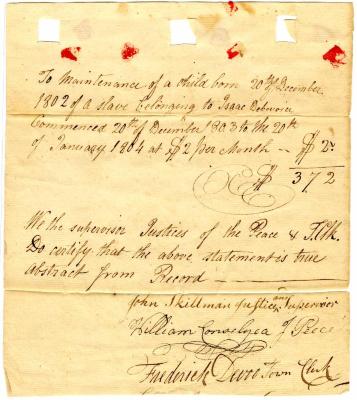 To Maintenance of a child born 20th of December
1802 of a slave belonging to Isaac Debevoice
Commenced 20th of December 1803 to the 20th
of January 1804 at $2 per Month -- $ 2"
$ 372
We the supervisor Justices of the Peace & T.Clk.
Do certify that the above statement is true
abstract from Record
John Skillman Justice and Supervisor
William Conselyea J Peace
Frederick Devoe Town Clerk